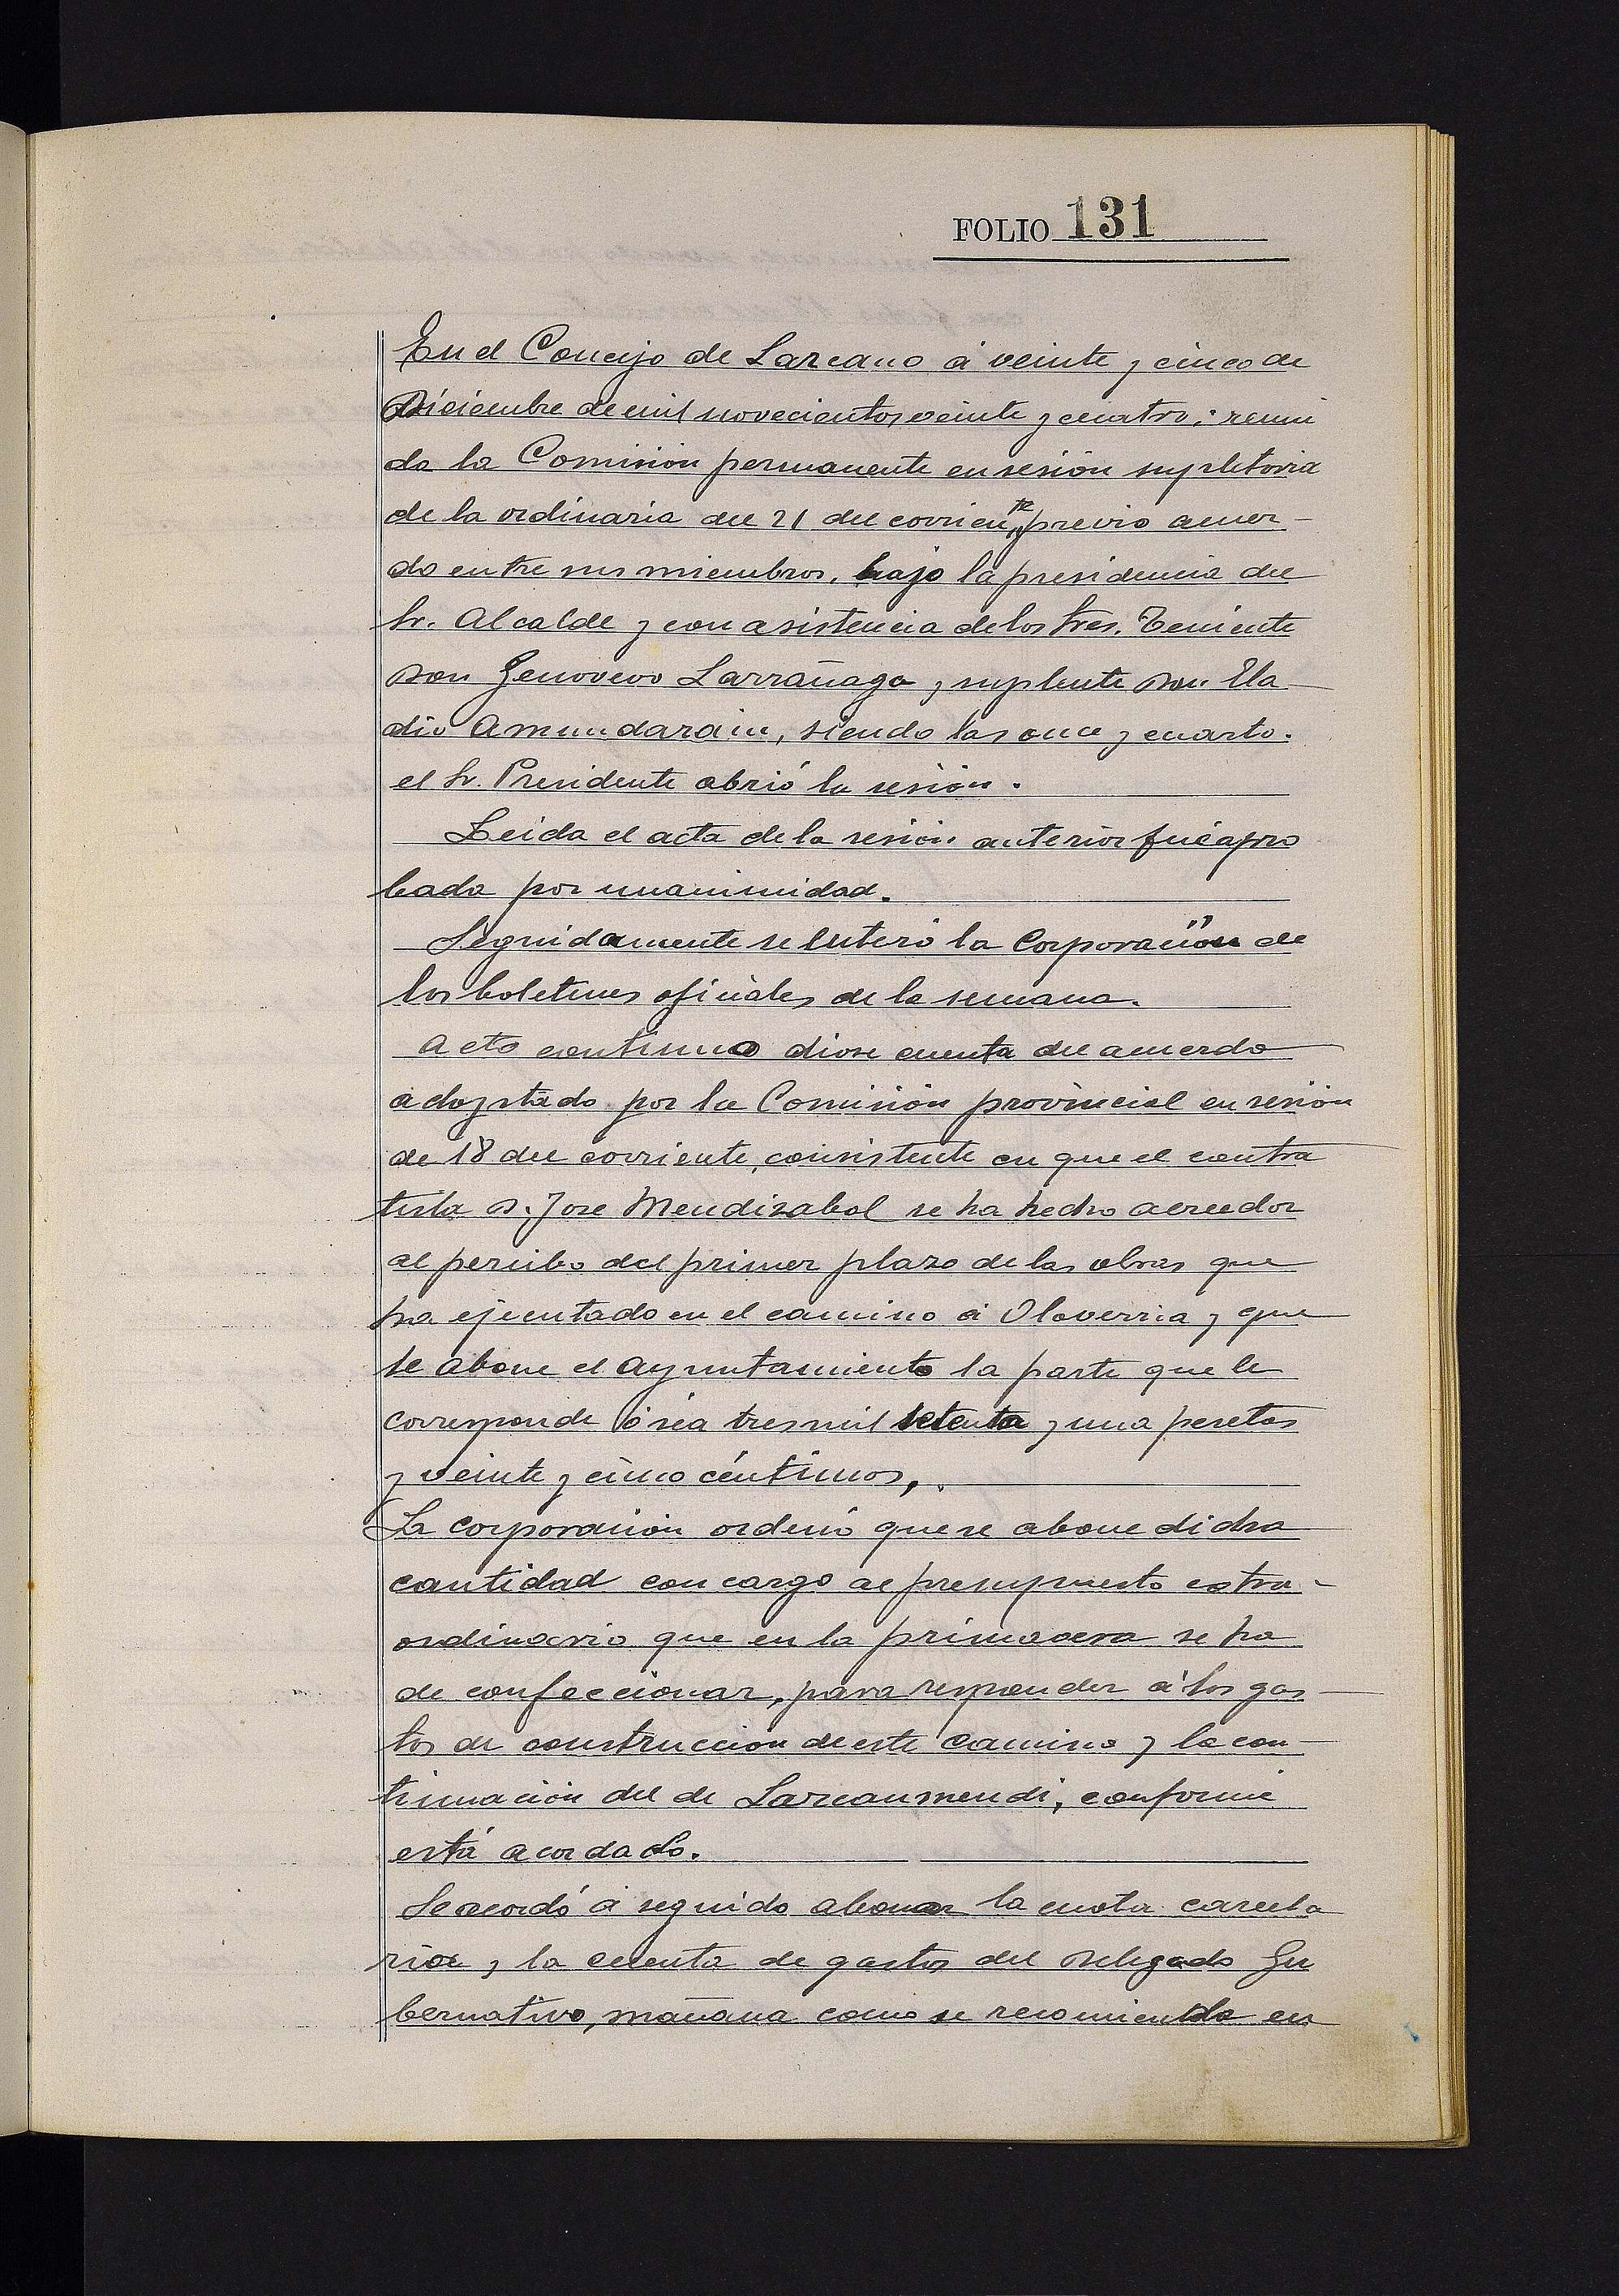 FOLIO 131
En el Concejo de Lazcano á veinte y cinco de
Diciembre de mil novecientos veinte y cuatro: reuni
da la Comisión permanente en sesión supletoria
de la ordinaria del 21 del corriente, previo acuer-
do entre sus miembros, bajo la presidencia del
Sr. Alcalde y con asistencia de los Sres. Teniente
Don Genovevo Larrañaga y suplente Don Ela
dio Amundarain, siendo las once y cuarto.
el Sr. Presidente abrió la sesión.
Leida el acta de la sesión anterior fué apro
bada por unanimidad.
Seguidamente se enteró la Corporación de
los boletines oficiales de la semana.
Acto continuo diose cuenta del acuerdo
adoptado por la Comisión provincial en sesión
de 18 del corriente, consistente en que el contra
tista D. Jose Mendizabal se ha hecho acreedor
al percibo del primer plazo de las obras que
ha ejecutado en el camino á Olaverria y que
se abone el Ayuntamiento la parte que le
corresponde ó sea tres mil setenta y una pesetas
y veinte y cinco céntimos,.
La corporación ordenó que se abone dicha
cantidad con cargo al presupuesto extra-
ordinario que en la primavera se ha
de confeccionar, para responder á los gas
tos de construccion de este camino y la con-
tinuación del de Lazcaumendi, conforme
está acordado.
Se acordó á seguido abonar la cuota carcela
ria y la cuenta de gastos del Delegado Gu
bernativo, mañana como se recomienda en